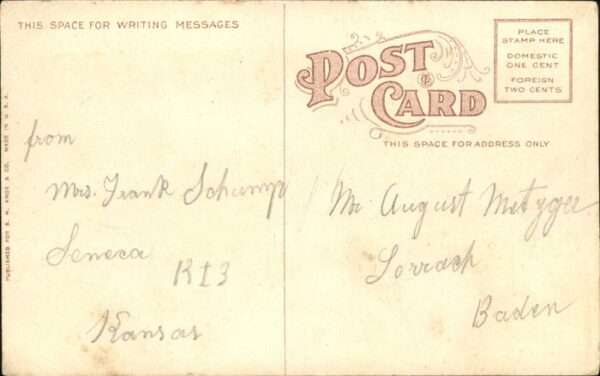 THIS SPACE FOR WRITING MESSAGES
POST CARD
PLACE
STAMP HERE
DOMESTIC
ONE CENT
FOREIGN
TWO CENTS
THIS SPACE FOR ADDRESS ONLY
from
Mrs. Frank Schump
Seneca
R I 3
Kansas
Mr. August Metzger
Lorrach
Baden
PUBLISHED FOR S. H. KNOX & CO. MADE IN U.S.A.